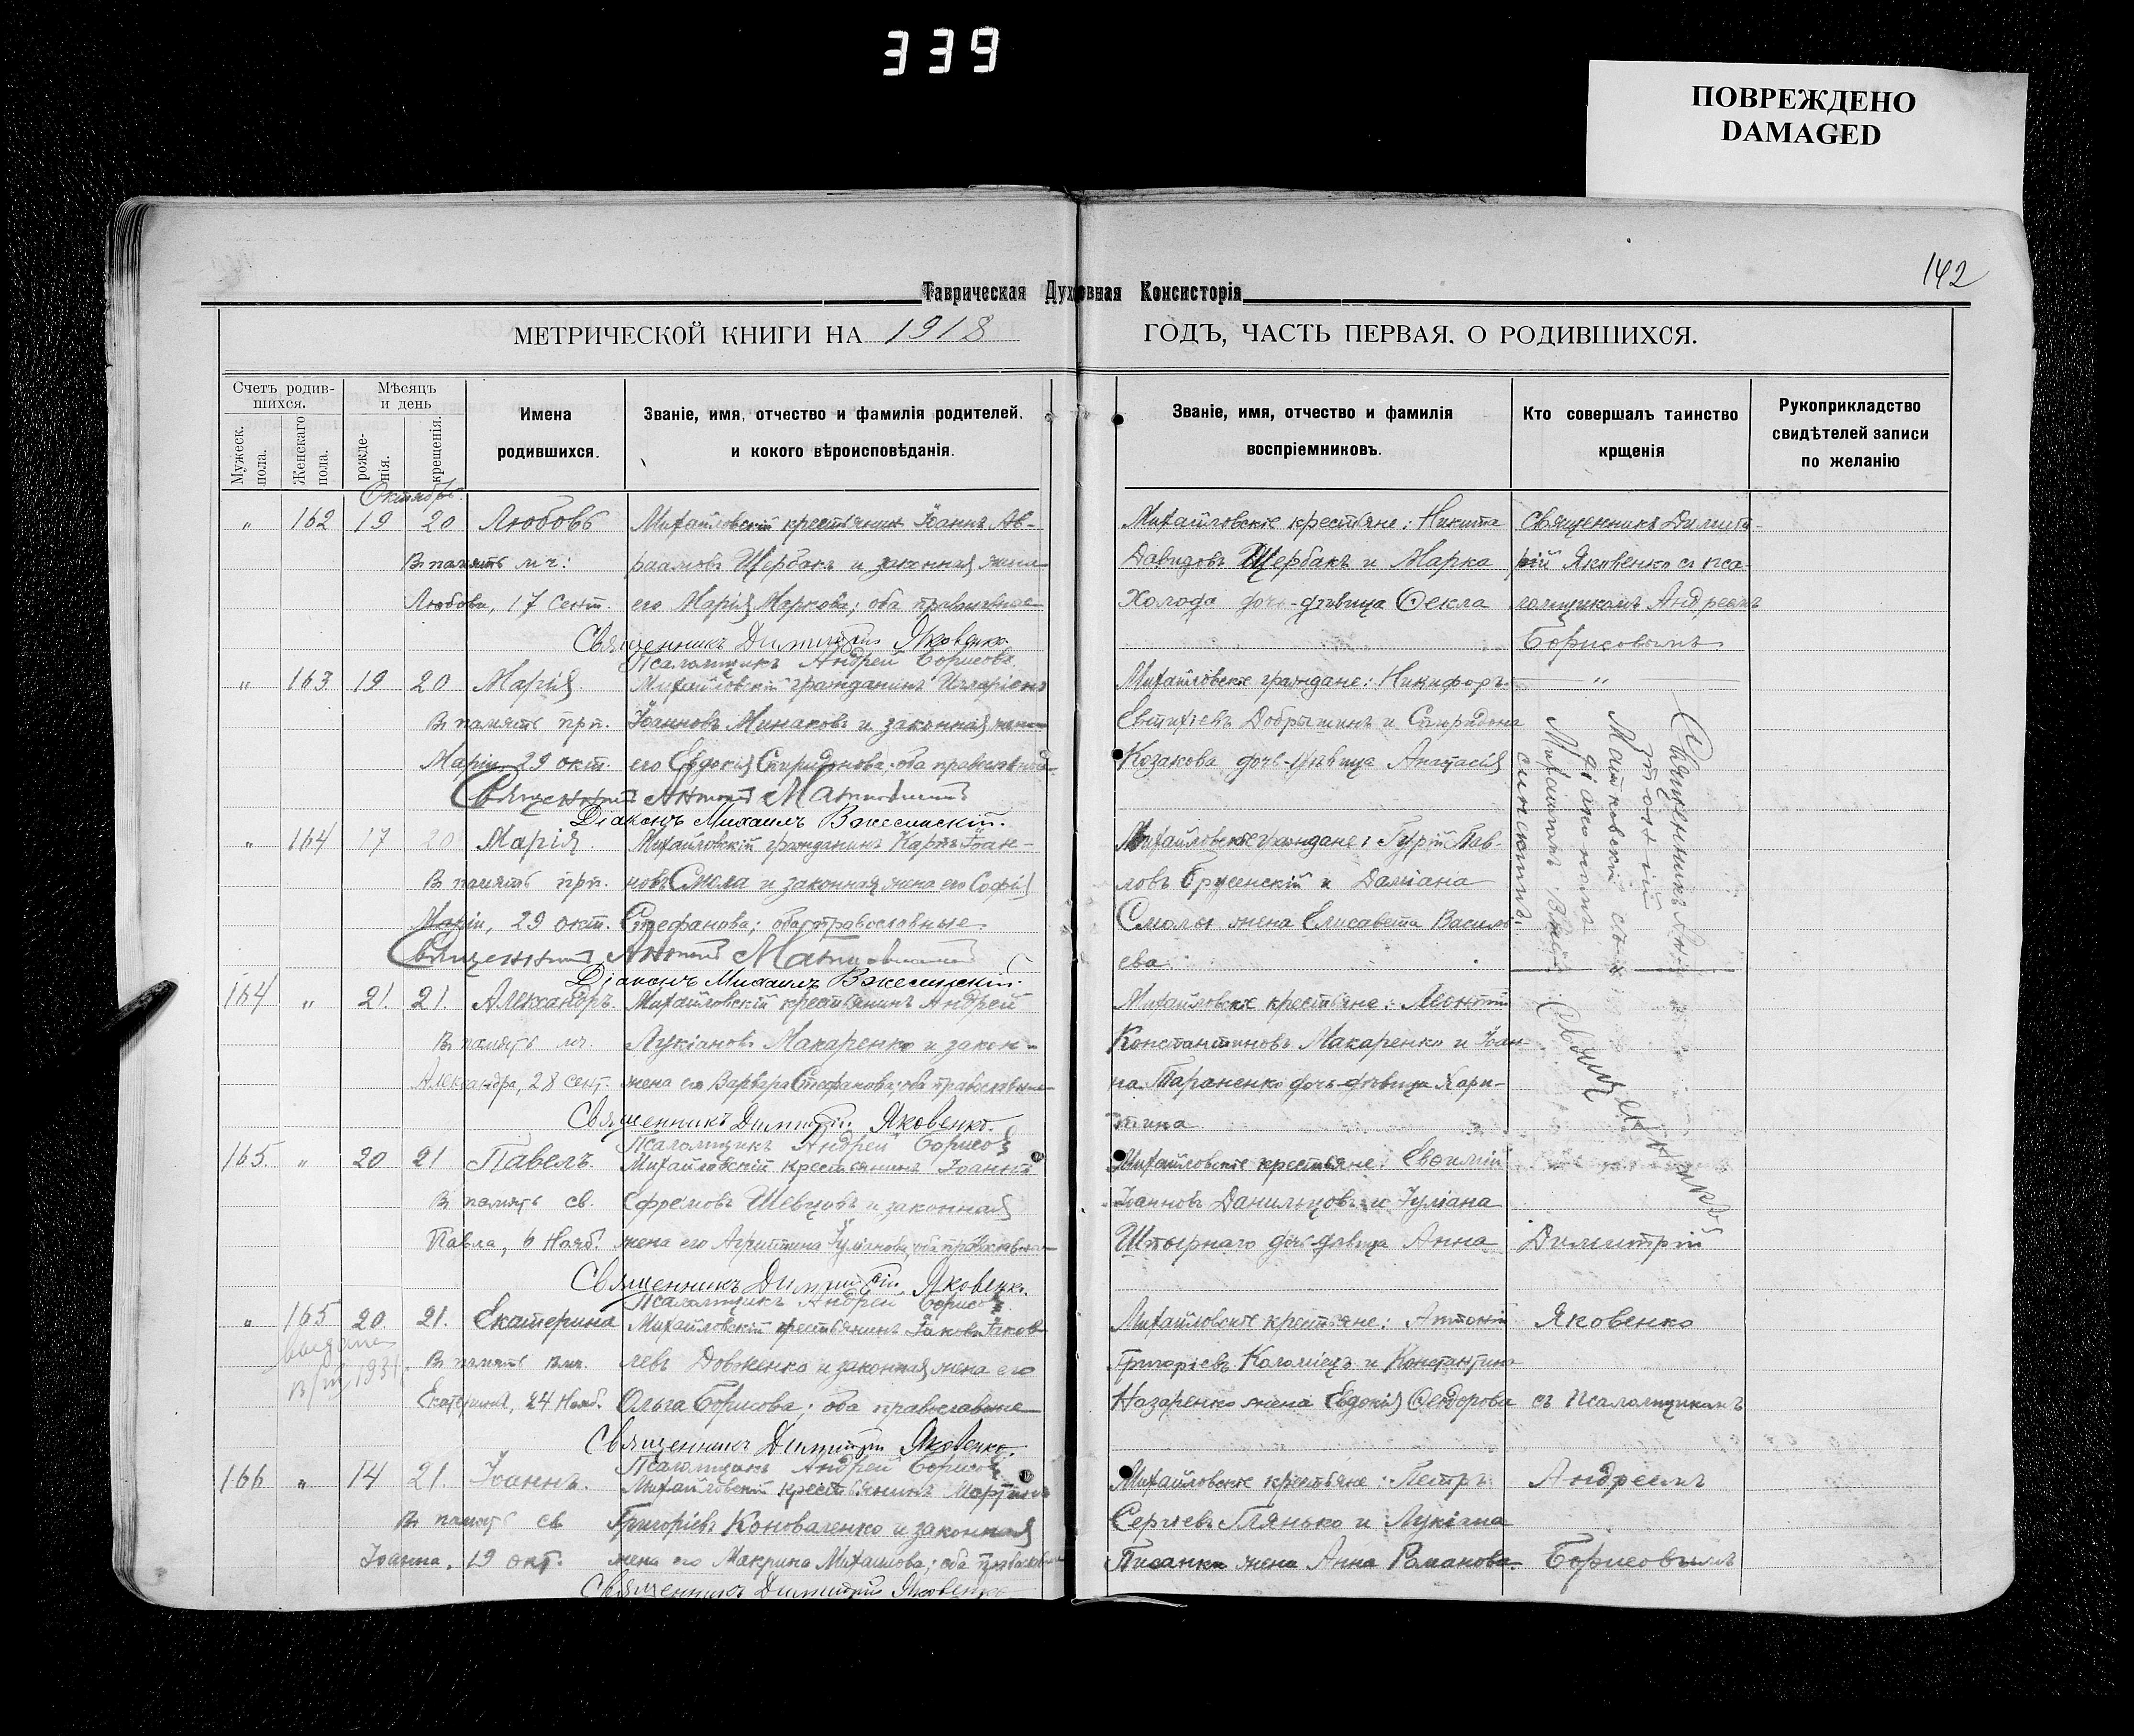 339
ПОВРЕЖДЕНО
DAMAGED
142
Таврическая Духовная Консисторія
МЕТРИЧЕСКОЙ КНИГИ НА 1918 ГОДЪ, ЧАСТЬ ПЕРВАЯ. О РОДИВШИХСЯ.
Счетъ родив-
шихся.
Мужеск.
пола.
Женскаго
пола.
Мѣсяцъ
и день
рожде-
нія.
крещенія.
Имена
родившихся.
Званіе, имя, отчество и фамилія родителей.
и кокого вѣроисповѣданія.
Званіе, имя, отчество и фамилія
воспріемниковъ.
Кто совершалъ таинство
крщенія
Рукоприкладство
свидѣтелей записи
по желанію
Октябрь.
" 162 19 20 Любовь Михайловскій крестьянинъ Іоаннъ Ав-
Въ память мч: раамовъ Щербакъ и законная жена
Любови, 17 сент. его Марія Маркова; оба православные
Священникъ Димитрій Яковенко.
Псаломщикъ Андрей Борисовъ.
Михайловскіе крестьяне: Никита
Давидовъ Щербакъ и Марка
Холода дочь-дѣвица Ѳекла
Священникъ Димит-
рій Яковенко съ пса-
ломщикомъ Андреемъ
Борисовымъ
" 163 19 20 Марія Михайловскій гражданинъ Илларіонъ
Въ память прп. Іоанновъ Минаковъ и законная жена
Маріи, 29 окт. его Евдокія Спиридонова; оба православные
Священникъ Антоній Матковскій
Діаконъ Михаилъ Вжесинскій.
Михайловскіе граждане: Никифоръ
Евтихіевъ Добрынинъ и Спиридона
Козакова дочь-дѣвица Анастасія
"
Священникъ Ан-
тоній
Матковскій съ
діакономъ
Михаиломъ Вже-
синскимъ
" 164 17 20 Марія. Михайловскій гражданинъ Карпъ Іоан-
Въ память прп. новъ Смола и законная жена его Софія
Маріи, 29 окт. Стефанова; оба православные
Священникъ Антоній Матковскій
Діаконъ Михаилъ Вжесинскій.
Михайловскіе граждане: Гурій Пав-
ловъ Брусенскій и Даміана
Смолы жена Елисавета Василь-
ева.
164 " 21. 21. Александръ. Михайловскій крестьянинъ Андрей
Въ память мч. Лукіановъ Макаренко и закон-
Александра, 28 сент. жена его Варвара Стефанова; оба православные
Священникъ Димитрій Яковенко.
Псаломщикъ Андрей Борисовъ
Михайловскіе крестьяне: Леонтій
Константиновъ Макаренко и Іоан-
на Тараненко дочь-дѣвица Хари-
тина
Священникъ
165. " 20 21 Павелъ. Михайловскій крестьянинъ Іоаннъ
Въ память св. Ефремовъ Шевцовъ и законная
Павла, 6 Нояб. жена его Агриппина Іуліанова; оба православные
Священникъ Димитрій Яковенко.
Псаломщикъ Андрей Борисовъ
Михайловскіе крестьяне: Евѳимій
Іоанновъ Данильцовъ и Іуліана
Штырнаго дочь-дѣвица Анна
Димитрій
" 165 20 21. Екатерина Михайловскій крестьянинъ Іаковъ Іаков-
Въ память вмч. левъ Довженко и законная жена его
Екатерины, 24 Нояб. Ольга Борисова; оба православные
Священникъ Димитрій Яковенко.
Псаломщикъ Андрей Борисовъ
Михайловскіе крестьяне: Антоній
Григоріевъ Коломіецъ и Константина
Назаренко жена Евдокія Ѳеодорова
Яковенко
съ псаломщикомъ
166 " 14 21. Іоаннъ. Михайловскій крестьянинъ Мартинъ
Въ память св. Григоріевъ Коноваленко и законная
Іоанна, 19 окт. жена его Макрина Михайлова; оба православные
Священникъ Димитрій Яковенко
Михайловскіе крестьяне: Петръ
Сергіевъ Глянько и Лукіана
Писанки жена Анна Романова.
Андреемъ
Борисовымъ